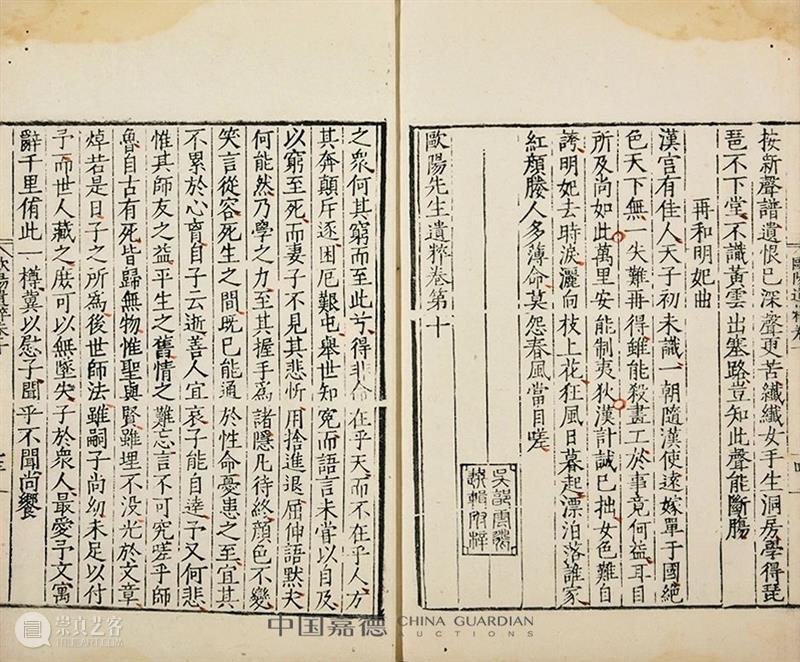 按新聲譜遺恨已深聲更苦纖纖女手生洞房學得琵
琶不下堂不識黃雲出塞路豈知此聲能斷腸
再和明妃曲
漢宮有佳人天子初未識一朝隨漢使遠嫁單于國絕
色天下無一失難再得雖能殺畫工於事竟何益耳目
所及尚如此萬里安能制夷狄漢計誠已拙女色難自
誇明妃去時淚灑向枝上花狂風日暮起漂泊落誰家
紅顏勝人多薄命莫怨春風當自嗟
歐陽先生遺粹卷第十
之衆何其窮而至此兮得非命在乎天而不在乎人方
其奔顛斥逐困厄艱屯舉世知冤而語言未嘗以自及
以窮至死而妻子不見其悲忻用捨進退屈伸語默夫
何能然乃學之力至其握手為諸隱几待終顏色不變
笑言從容死生之間既已能通於性命憂患之至宜其
不累於心育自子云逝善人宜哀子能自達予又何悲
惟其師友之益平生之舊情之難忘言不可究嗟乎師
魯自古有死皆歸無物惟聖與賢雖埋不没光於文章
焯若是日子之所為後世師法雖嗣子尚幼未足以付
予而世人藏之庶可以無墜失子於衆人最愛予文寓
辭千里侑此一樽冀以慰子聞乎不聞尚饗
崇真艺客
中国嘉德 CHINA GUARDIAN
AUCTIONS